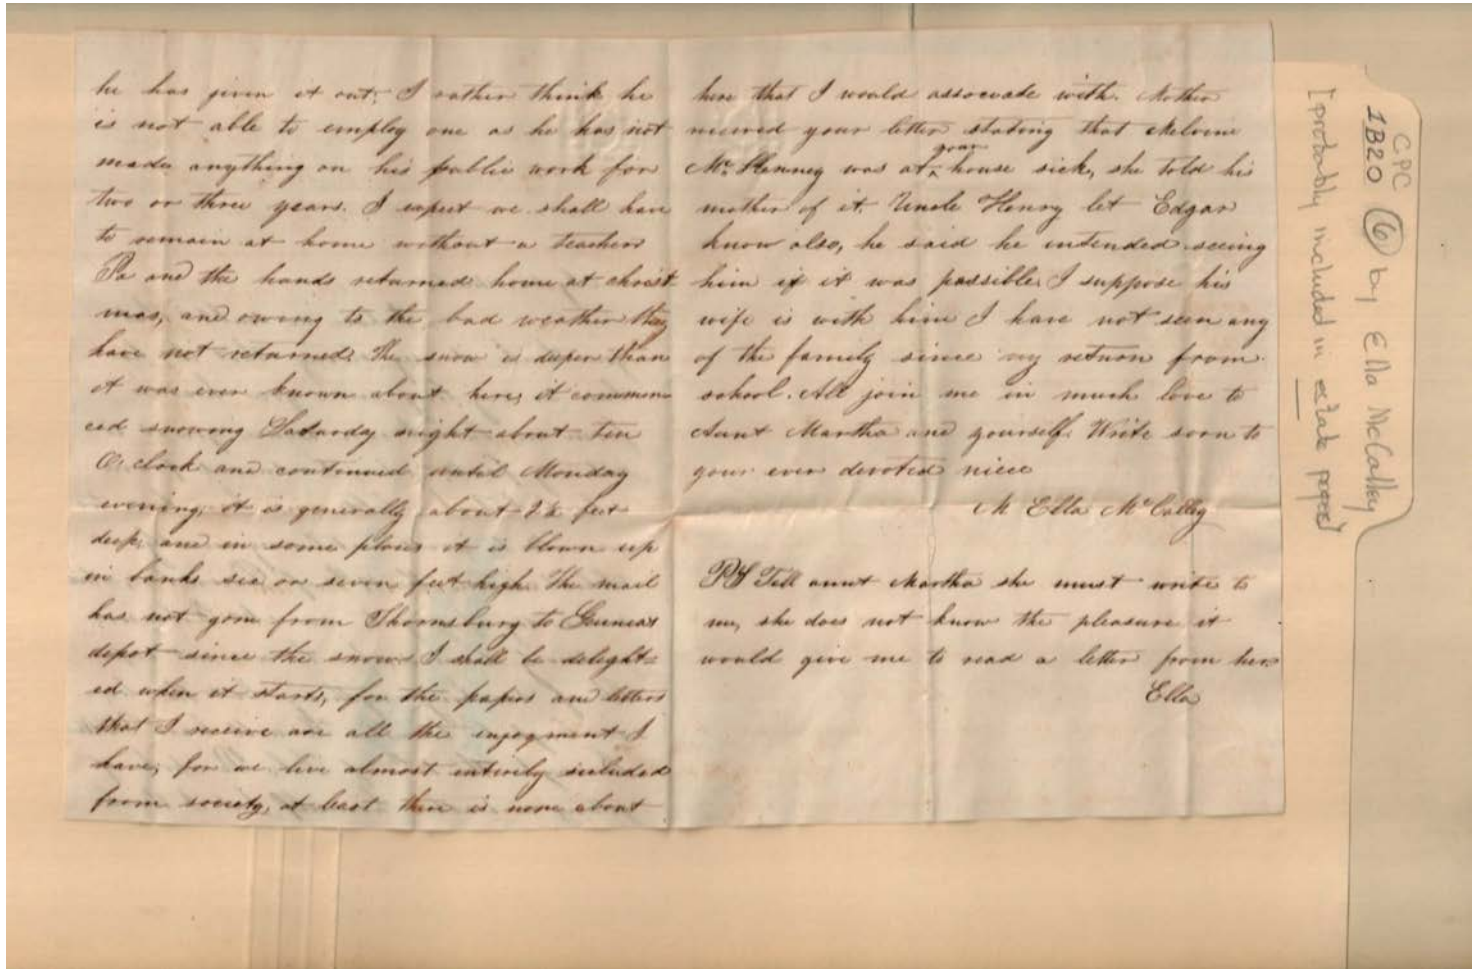 he has given it out, I rather think he
is not able to employ one as he has not
made anything on his public work for
two or three years. I expect we shall have
to remain at home without a teacher
Pa and the hands returned home at christ
mas, and owing to the bad weather they
have not returned. The snow is deeper than
it was ever known about here, it commen
ced snowing Saturday night about ten
O,clock and continued until Monday
evening, it is generally about 2½ feet
deep, and in some places it is blown up
in banks six or seven feet high. The mail
has not gone from Thornsburg to Guineas
depot since the snow. I shall be delight=
ed when it starts, for the papers and letters
that I receive are all the enjoyment I
have, for we live almost entirely secluded
from society, at least there is none about
here that I would associate with. Mother
received your letter stating that Melvine
your
Mc.Kenney was at ^ house sick, she told his
mother of it. Uncle Henry let Edgar
know also, he said he intended seeing
him if it was possible, I suppose his
wife is with him I have not seen any
of the family since my return from
school. All join me in much love to
Aunt Martha and yourself. Write soon to
your ever devoted niece
M Ella McCalley
PS Tell aunt Martha she must write to
me, she does not know the pleasure it
would give me to read a letter from her
Ella
CPC
1B20 (6) by Ella McCalley
[probably included in estate papers]